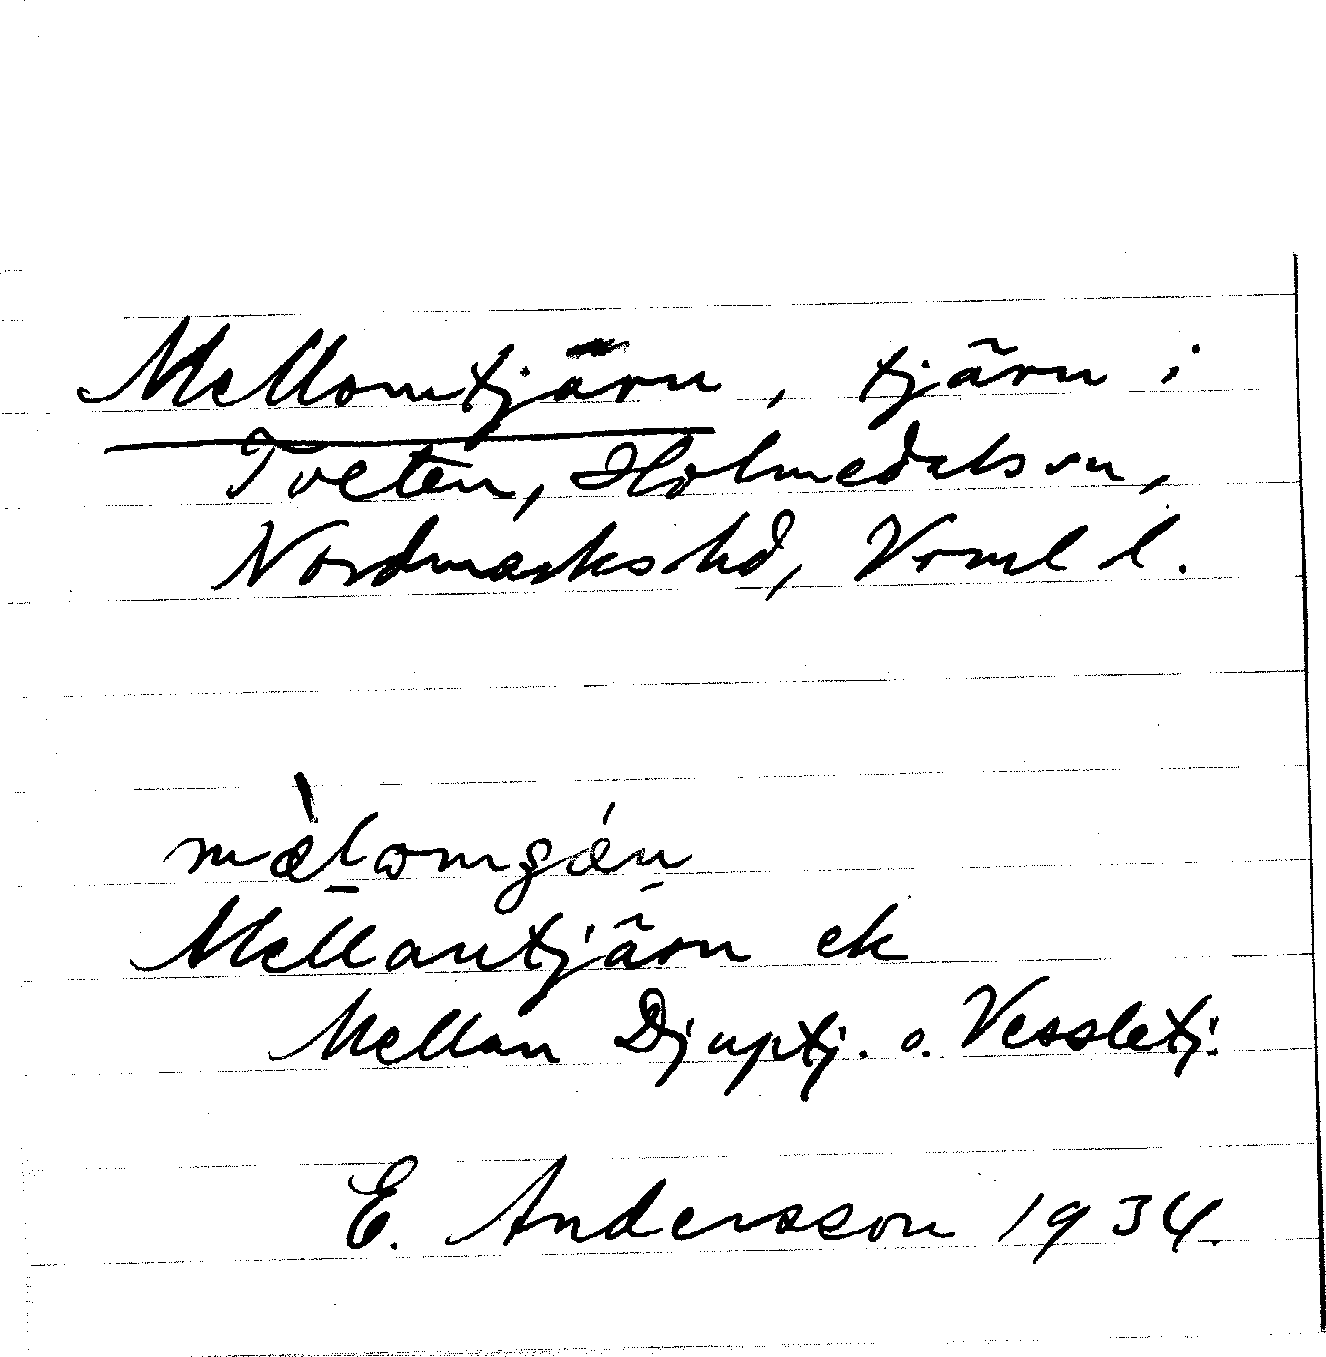 Mellomtjärn, tjärn i
Tveten, Holmedals sn,
Nordmarks hd, Vrml l.
mæ̀lωmʒǽn
Mellantjärn ek
Mellan Djuptj. o. Vessletj.
E. Andersson 1934.